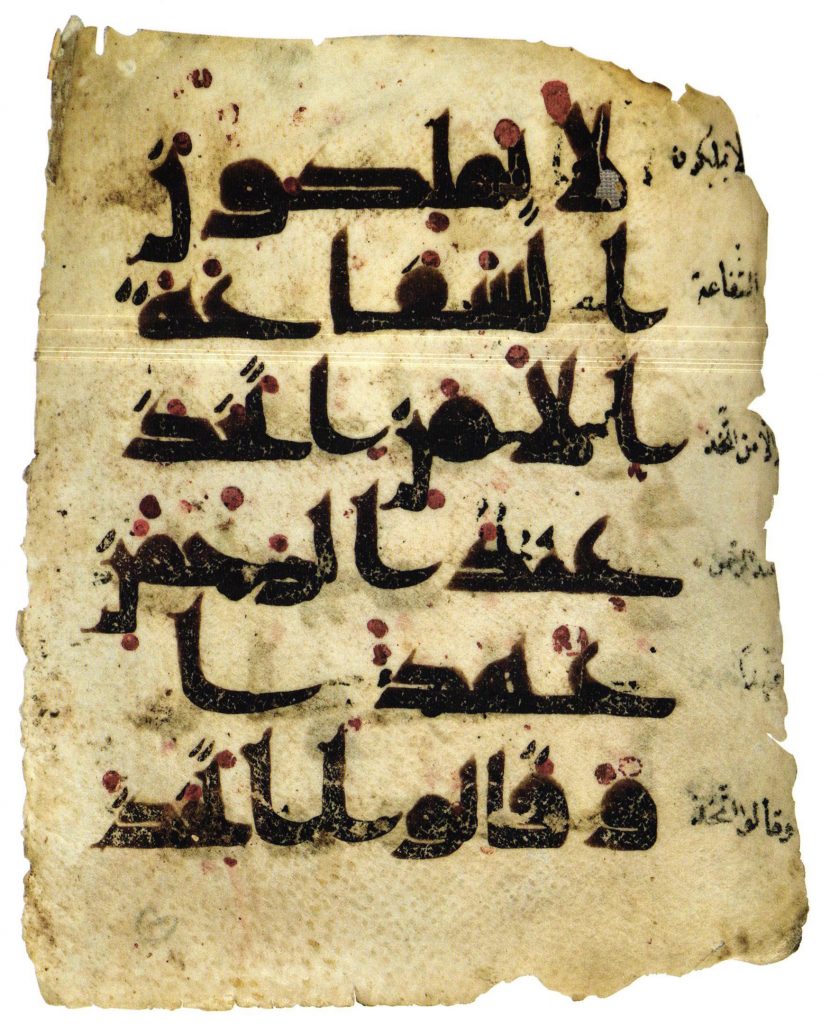 لا يملكون
الشفاعة
الا من اتخذ
عند الرحمن
عهدا
و قالوا اتخذ
لا يملكون
الشفاعة
الا من اتخذ
عند الرحمن
وقالوا اتخذ